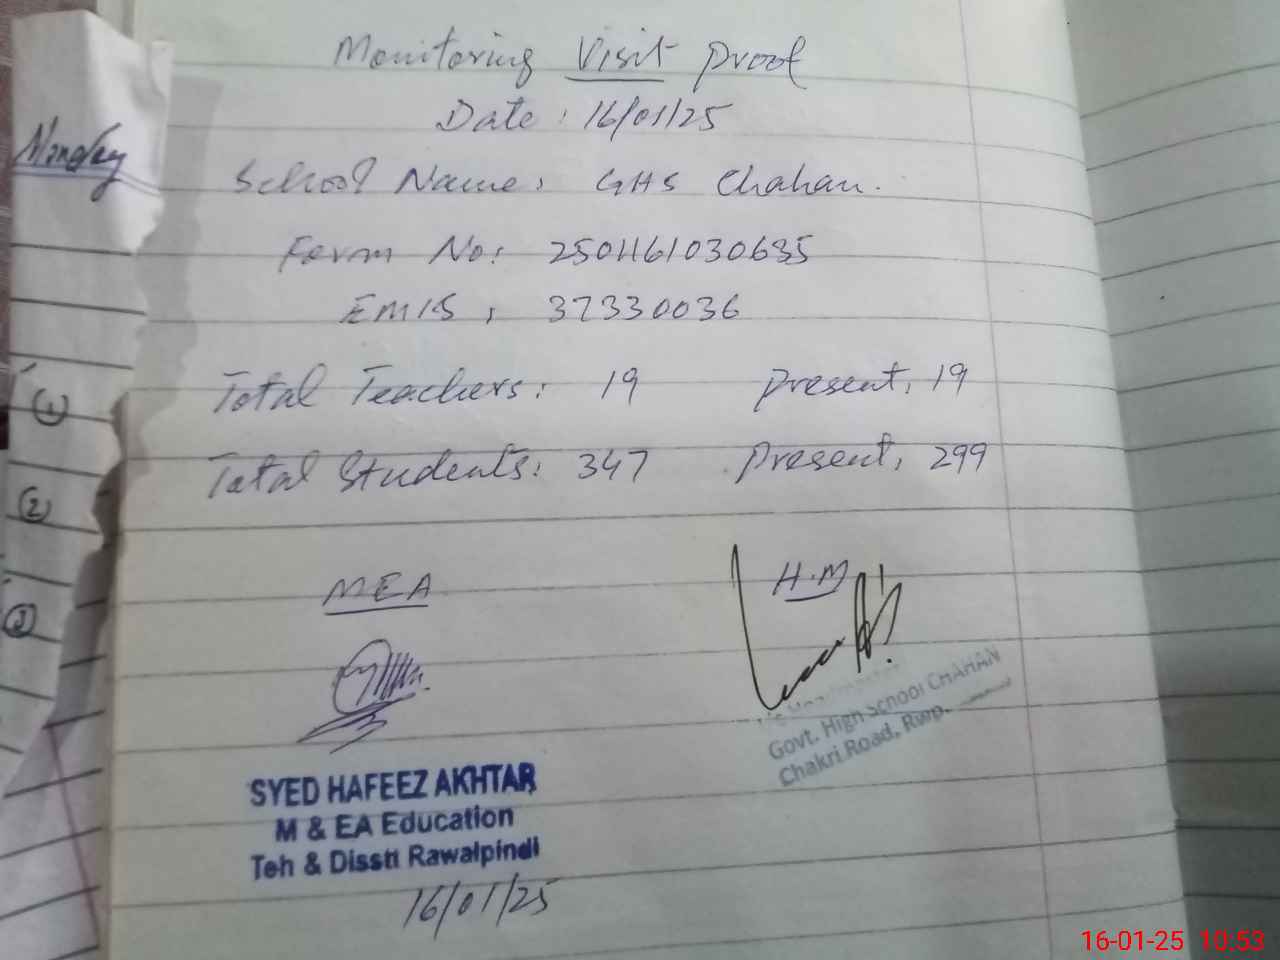 Monitoring Visit Proof
Date: 16/01/25
Monday
School Name: GHS Chahan.
Form No: 2501161030635
EMIS: 37330036
Total Teachers: 19 Present: 19
Total Students: 347 Present: 299
(1)
(2)
(3)
MEA
H.M
SYED HAFEEZ AKHTAR
M & EA Education
Teh & Disstt Rawalpindi
16/01/25
Headmaster
Govt. High School CHAHAN
Chakri Road, Rwp.
16-01-25 10:53